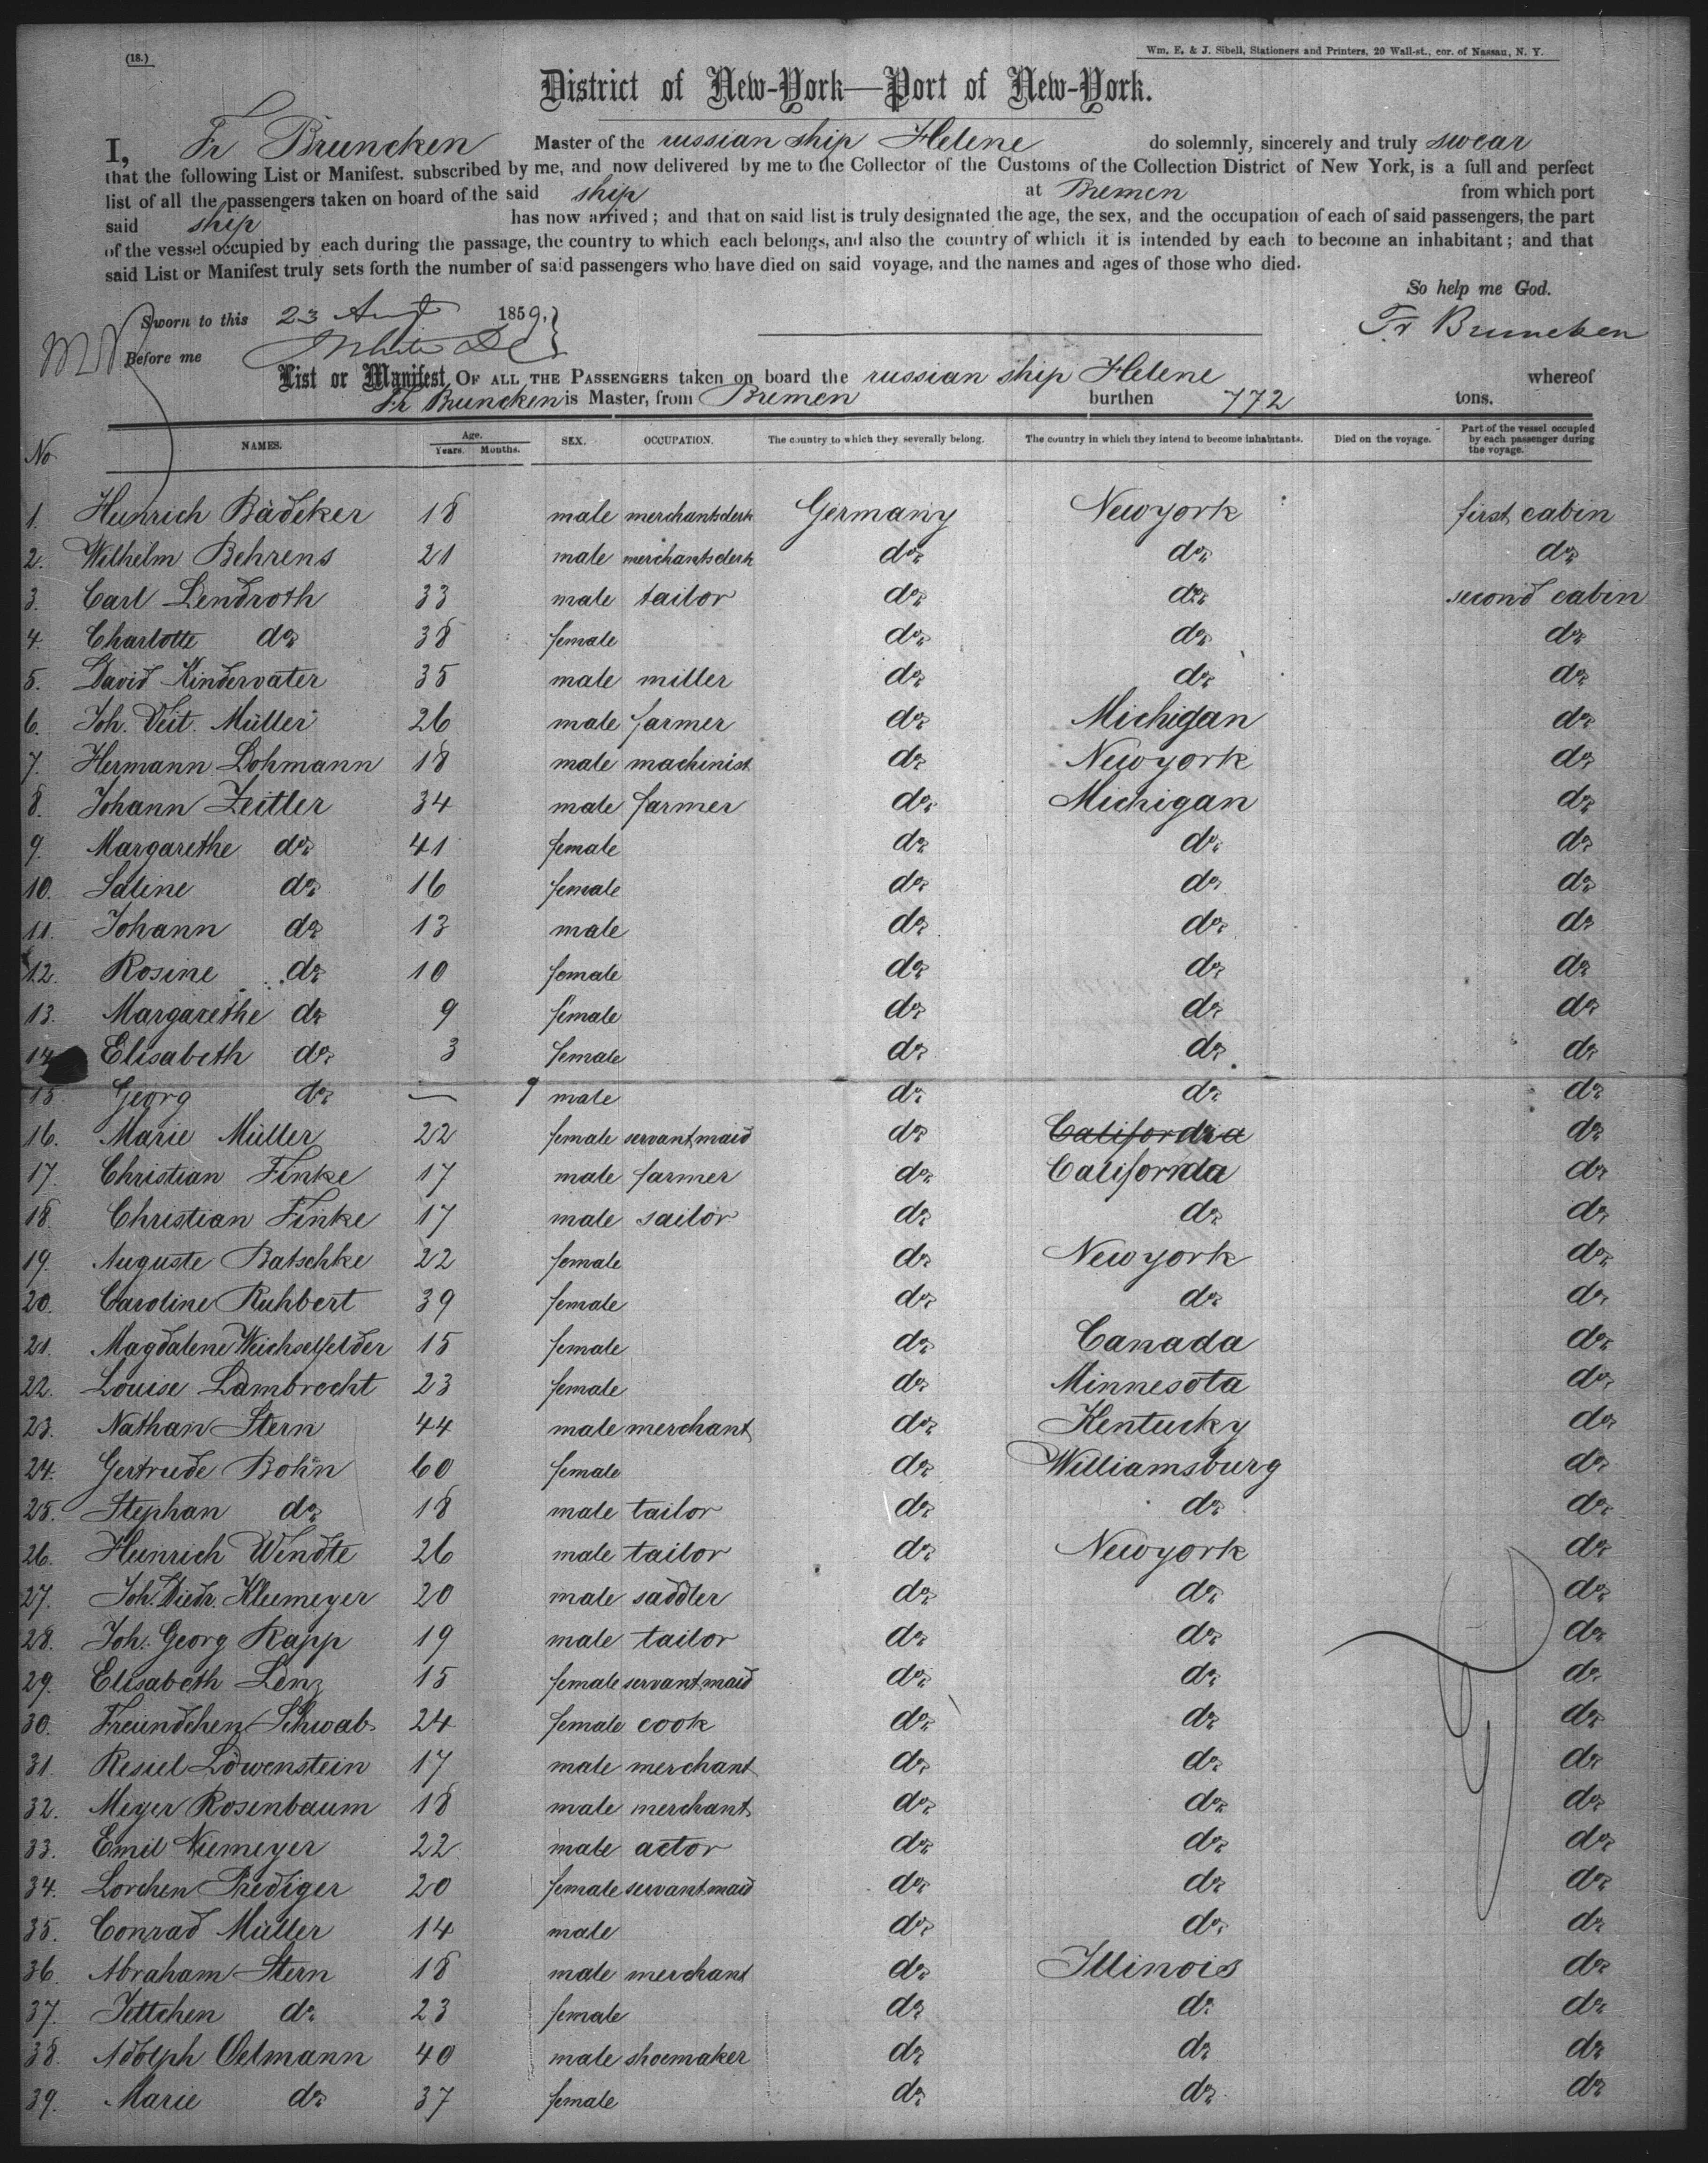 (18.)
Wm. E. & J. Sibell, Stationers and Printers, 20 Wall-st., cor. of Nassau, N. Y.
District of New-York—Port of New-York.
I, Fr Bruncken Master of the russian ship Helene do solemnly, sincerely and truly swear
that the following List or Manifest, subscribed by me, and now delivered by me to the Collector of the Customs of the Collection District of New York, is a full and perfect
list of all the passengers taken on board of the said ship at Bremen from which port
said ship has now arrived; and that on said list is truly designated the age, the sex, and the occupation of each of said passengers, the part
of the vessel occupied by each during the passage, the country to which each belongs, and also the country of which it is intended by each to become an inhabitant; and that
said List or Manifest truly sets forth the number of said passengers who have died on said voyage, and the names and ages of those who died.
So help me God.
Sworn to this 23 Augt 1859,
Fr Bruncken
Before me White
List or Manifest OF ALL THE PASSENGERS taken on board the russian ship Helene whereof
Fr Bruncken is Master, from Bremen burthen 772 tons.
No NAMES. Age. Years. Months. SEX. OCCUPATION. The country to which they severally belong. The country in which they intend to become inhabitants. Died on the voyage. Part of the vessel occupied by each passenger during the voyage.
1. Heinrich Bädeker 18 male merchantsclerk Germany Newyork first cabin
2. Wilhelm Behrens 21 male merchantsclerk do. do. do.
3. Carl Lendroth 33 male tailor do. do. second cabin
4. Charlotte do. 38 female do. do. do.
5. David Kindervater 35 male miller do. do. do.
6. Joh. Veit. Müller 26 male farmer do. Michigan do.
7. Hermann Lohmann 18 male machinist do. Newyork do.
8. Johann Zeitler 34 male farmer do. Michigan do.
9. Margarethe do. 41 female do. do. do.
10. Saline do. 16 female do. do. do.
11. Johann do. 13 male do. do. do.
12. Rosine do. 10 female do. do. do.
13. Margarethe do. 9 female do. do. do.
14. Elisabeth do. 3 female do. do. do.
15 Georg do. — 9 male do. do. do.
16. Marie Müller 22 female servantmaid do. California do.
17. Christian Finke 17 male farmer do. California do.
18. Christian Finke 17 male sailor do. do. do.
19. Auguste Batschke 22 female do. Newyork do.
20. Caroline Ruhbert 39 female do. do. do.
21. Magdalene Weichselfelder 15 female do. Canada do.
22. Louise Lambrecht 23 female do. Minnesota do.
23. Nathan Stern 44 male merchant do. Kentucky do.
24. Gertrude Bohn 60 female do. Williamsburg do.
25. Stephan do. 18 male tailor do. do. do.
26. Heinrich Windte 26 male tailor do. Newyork do.
27. Joh. Diedr. Kleemeyer 20 male saddler do. do. do.
28. Joh. Georg Rapp 19 male tailor do. do. do.
29. Elisabeth Lenz 15 female servantmaid do. do. do.
30. Freundchen Schwab 24 female cook do. do. do.
31. Resiel Löwenstein 17 male merchant do. do. do.
32. Meyer Rosenbaum 18 male merchant do. do. do.
33. Emil Niemeyer 22 male actor do. do. do.
34. Lorchen Prediger 20 female servantmaid do. do. do.
35. Conrad Müller 14 male do. do. do.
36. Abraham Stern 18 male merchant do. Illinois do.
37. Jettchen do. 23 female do. do. do.
38. Adolph Oelmann 40 male shoemaker do. do. do.
39. Marie do. 37 female do. do. do.